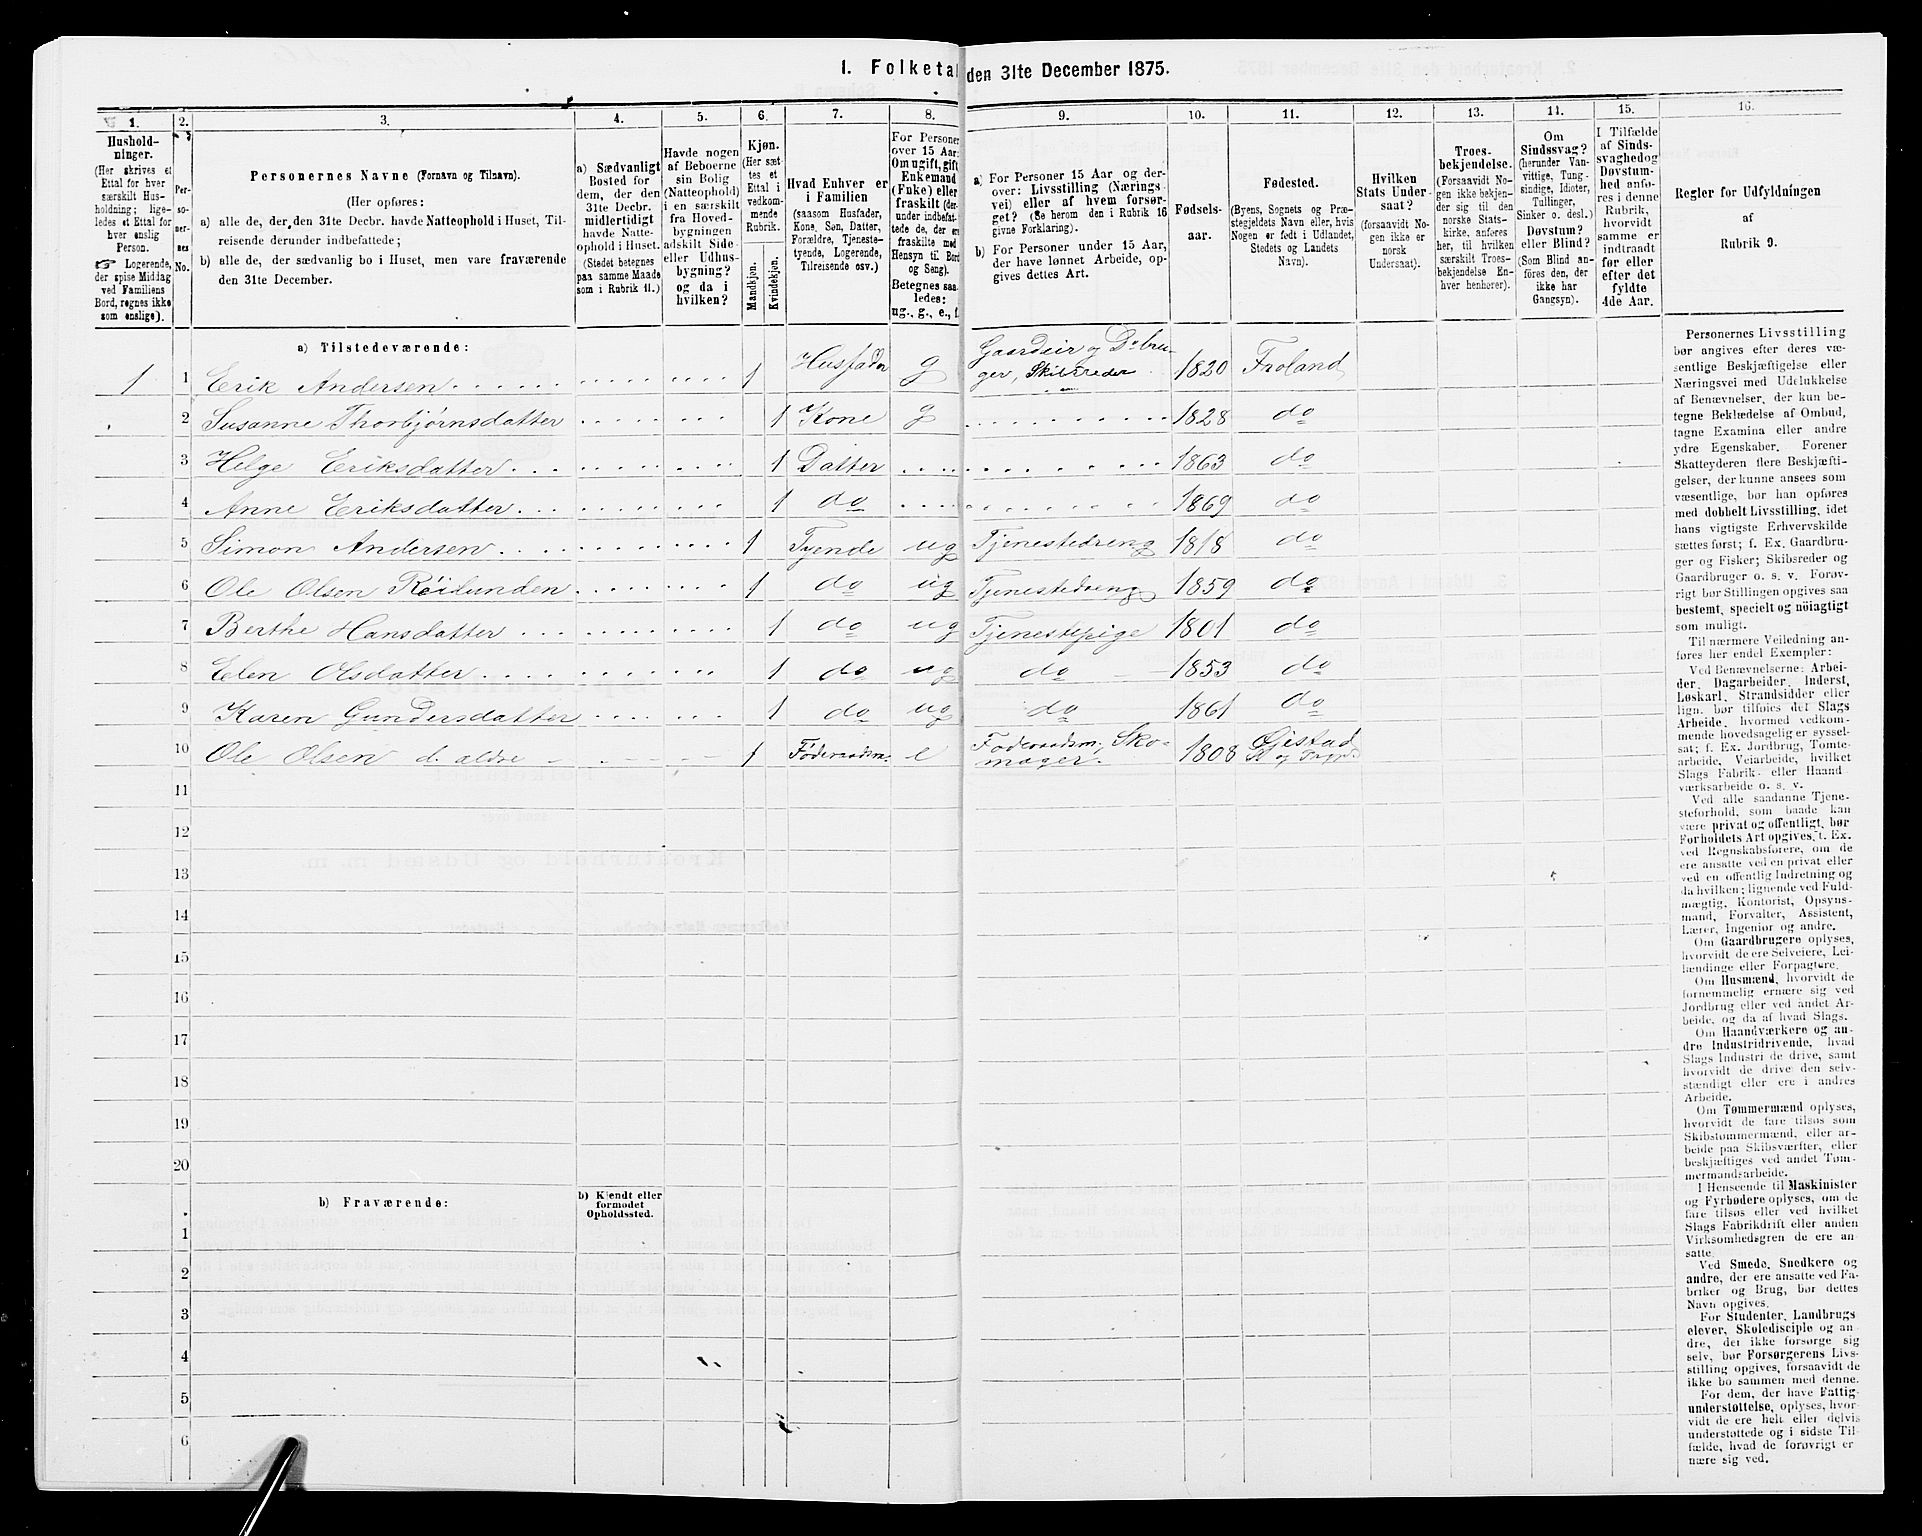 1. Folketal den 31te December 1875.
1. 2. 3. 4. 5. 6. 7. 8. 9. 10. 11. 12. 13. 14. 15. 16.
Hushold-
ninger.
(Her skrives et
Ettal for hver
særskilt Hus-
holdning; lige-
ledes et Ettal for
hver enslig
Person.
☞ Logerende,
der spise Middag
ved Familiens
Bord, regnes ikke
som enslige).
Per-
so-
ner-
nes
No.
Personernes Navne (Fornavn og Tilnavn).
(Her opføres:
a) alle de, der, den 31te Decbr. havde Natteophold i Huset, Til-
reisende derunder indbefattede;
b) alle de, der sædvanlig bo i Huset, men vare fraværende
den 31te December.
a) Sædvanligt
Bosted for
dem, der den
31te Decbr.
midlertidigt
havde Natte-
ophold i Huset.
(Stedet betegnes
paa samme Maade
som i Rubrik 11.)
Havde nogen
af Beboerne
sin Bolig
(Natteophold)
i en særskilt
fra Hoved-
bygningen
adskilt Side-
eller Udhus-
bygning?
og da i
hvilken?
Kjøn.
(Her sæt-
tes et
Ettal i
vedkom-
mende
Rubrik.
Mandkjøn.
Kvindekjøn.
Hvad Enhver er
i Familien
(saasom Husfader,
Kone, Søn, Datter,
Forældre, Tjeneste-
tyende, Logerende,
Tilreisende osv.)
For Personer
over 15 Aar:
Om ugift, gift,
Enkemand
(Enke) eller
fraskilt (der-
under indbefat-
tede de, der ere
fraskilte med
Hensyn til Bord
og Seng).
Betegnes saa-
ledes:
ug., g., e., f.
a) For Personer 15 Aar og der-
over: Livsstilling (Nærings-
vei) eller af hvem forsør-
get? (Se herom den i Rubrik 16
givne Forklaring).
b) For Personer under 15 Aar,
der have lønnet Arbeide, op-
gives dettes Art.
Fødsels-
aar.
Fødested.
(Byens, Sognets og Præ-
stegjeldets Navn eller, hvis
Nogen er født i Udlandet,
Stedets og Landets
Navn).
Hvilken
Stats Under-
saat?
(forsaavidt No-
gen ikke er
norsk
Undersaat).
Troes-
bekjendelse.
(Forsaavidt No-
gen ikke bekjen-
der sig til den
norske Stats-
kirke, anføres
her, til hvilken
særskilt Troes-
bekjendelse En-
hver henhører).
Om
Sindssvag?
(herunder Van-
vittige, Tung-
sindige, Idioter,
Tullinger,
Sinker o. desl.)
Døvstum?
eller Blind?
(Som Blind an-
føres den, der
ikke har
Gangsyn).
I Tilfælde
af Sinds-
svaghed og
Døvstum-
hed anfø-
res i denne
Rubrik,
hvorvidt
samme er
indtraadt
før eller
efter det
fyldte
4de Aar.
Regler for Udfyldningen
af
Rubrik 9.
a) Tilstedeværende:
1 1 Erik Andersen 1 Husfader g Gaardeier og Do bru-
ger, Skibsreder 1820 Froland
2 Susanne Thorbjørnsdatter 1 Kone g 1828 do
3 Helge Eriksdatter 1 Datter 1863 do
4 Anne Eriksdatter 1 do 1869 do
5 Simon Andersen 1 Tyende ug Tjenestedreng 1818 do
6 Ole Olsen Röilunden 1 do ug Tjenestedreng 1859 do
7 Berthe Hansdatter 1 do ug Tjenestepige 1801 do
8 Elen Olsdatter 1 do ug do 1853 do
9 Karen Gundersdatter 1 do ug do 1861 do
10 Ole Olsen d. ældre 1 Föderaadsm. e Föderaadsm. Sko-
mager. 1808 Øiestad
11
12
13
14
15
16
17
18
19
20
b) Fraværende:
b) Kjendt eller
formodet
Opholdssted.
1
2
3
4
5
6
Personernes Livsstilling
bør angives efter deres væ-
sentlige Beskjæftigelse eller
Næringsvei med Udelukkelse
af Benævnelser, der kun be-
tegne Beklædelse af Ombud,
tagne Examina eller andre
ydre Egenskaber. Forener
Skatteyderen flere Beskjæfti-
gelser, der kunne ansees som
væsentlige, bør han opføres
med dobbelt Livsstilling, idet
hans vigtigste Erhvervskilde
sættes først; f. Ex. Gaardbru-
ger og Fisker; Skibsreder og
Gaardbruger o. s. v. Forøv-
rigt bør Stillingen opgives saa
bestemt, specielt og nöiagtigt
som muligt.
Til nærmere Veiledning an-
føres her endel Exempler:
Ved Benævnelserne: Arbei-
der, Dagarbeider, Inderst,
Løskarl, Strandsidder eller
lign. bør tilføies det Slags
Arbeide, hvormed vedkom-
mende hovedsagelig er syssel-
sat; f. Ex. Jordbrug, Tomte-
arbeide, Veiarbeide, hvilket
Slags Fabrik- eller Haand
værksarbeide o. s. v.
Ved alle saadanne Tjene-
steforhold, som baade kan
være privat og offentligt, bør
Forholdets Art opgives, t. Ex.
ved Regnskabsførere, om de
ere ansatte ved en privat eller
ved en offentlig Indretning og
da hvilken; lignende ved Fuld-
mægtig, Kontorist, Opsyns-
mand, Forvalter, Assistent,
Lærer, Ingeniør og andre.
Om Gaardbrugere oplyses,
hvorvidt de ere Selveiere, Lei-
lændinge eller Forpagtere.
Om Husmænd, hvorvidt de
fornemmelig ernære sig ved
Jordbrug eller ved andet Ar-
beide, og da af hvad Slags.
Om Haandværkere og an-
dre Industridrivende, hvad
Slags Industri de drive, samt
hvorvidt de drive den selv-
stændigt eller ere i andres
Arbeide.
Om Tømmermænd oplyses,
hvorvidt de fare tilsøs som
Skibstømmermænd, eller ar-
beide paa Skibsværfter, eller
beskjæftiges ved andet Tøm-
mermandsarbeide.
I Henseende til Maskinister
og Fyrbødere oplyses, om de
fare tilsøs eller ved hvilket
Slags Fabrikdrift eller anden
Virksomhedsgren de ere an-
satte.
Ved Smede, Snedkere og
andre, der ere ansatte ved Fa-
briker og Brug, bør dettes
Navn opgives.
For Studenter, Landbrugs
elever, Skoledisciple og an-
dre, der ikke forsørge sig
selv, bør Forsørgerens Livs-
stilling opgives, forsaavidt de
ikke bo sammen med denne.
For dem, der have Fattig-
understøttelse, oplyses, hvor-
vidt de ere helt eller delvis
understøttede og i sidste Til-
fælde, hvad de forøvrigt er
nære sig ved.